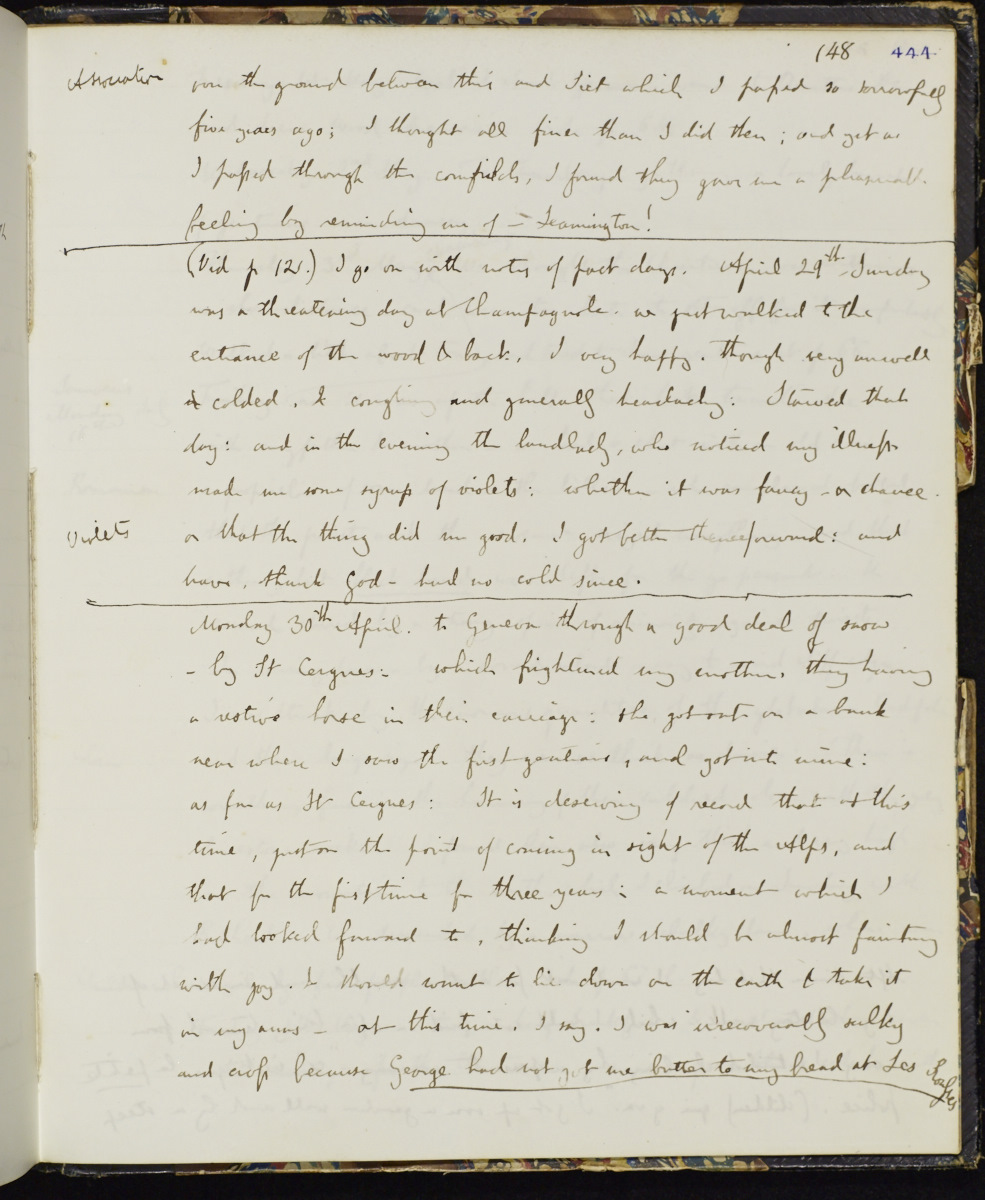 148 444
Association over the ground between this and Siet which I passed so sorrowfully
five years ago; I thought all finer than I did then; and yet as
I passed through the cornfields, I found they gave me a pleasurable
feeling by reminding me of - Leamington!
(Vid p 121.) I go on with notes of past days. April 29th Sunday
was a threatening day at Champagnole. we just walked to the
entrance of the wood & back. I very happy. though very unwell
& colded. & coughing and generally headachy: I starved that
day: and in the evening the landlady, who noticed my illness
made me some syrup of violets: whether it was fancy - or chance.
Violets or that the thing did me good. I got better thenceforward: and
have, thank God - had no cold since.
Monday 30th April. to Geneva through a good deal of snow
- by St Cergues: which frightened my mother. they having
a restive horse in their carriage: she got out on a bank
near where I saw the first gentians, and got into mine:
as far as St Cergues: It is deserving of record that at this
time, just on the point of coming in sight of the Alps, and
that for the first time for three years: a moment which I
had looked forward to, thinking I should be almost fainting
with joy. & should want to lie down on the earth & take it
in my arms - at this time. I say. I was irrecoverably sulky
and cross because George had not got me butter to my bread at Les Rousses